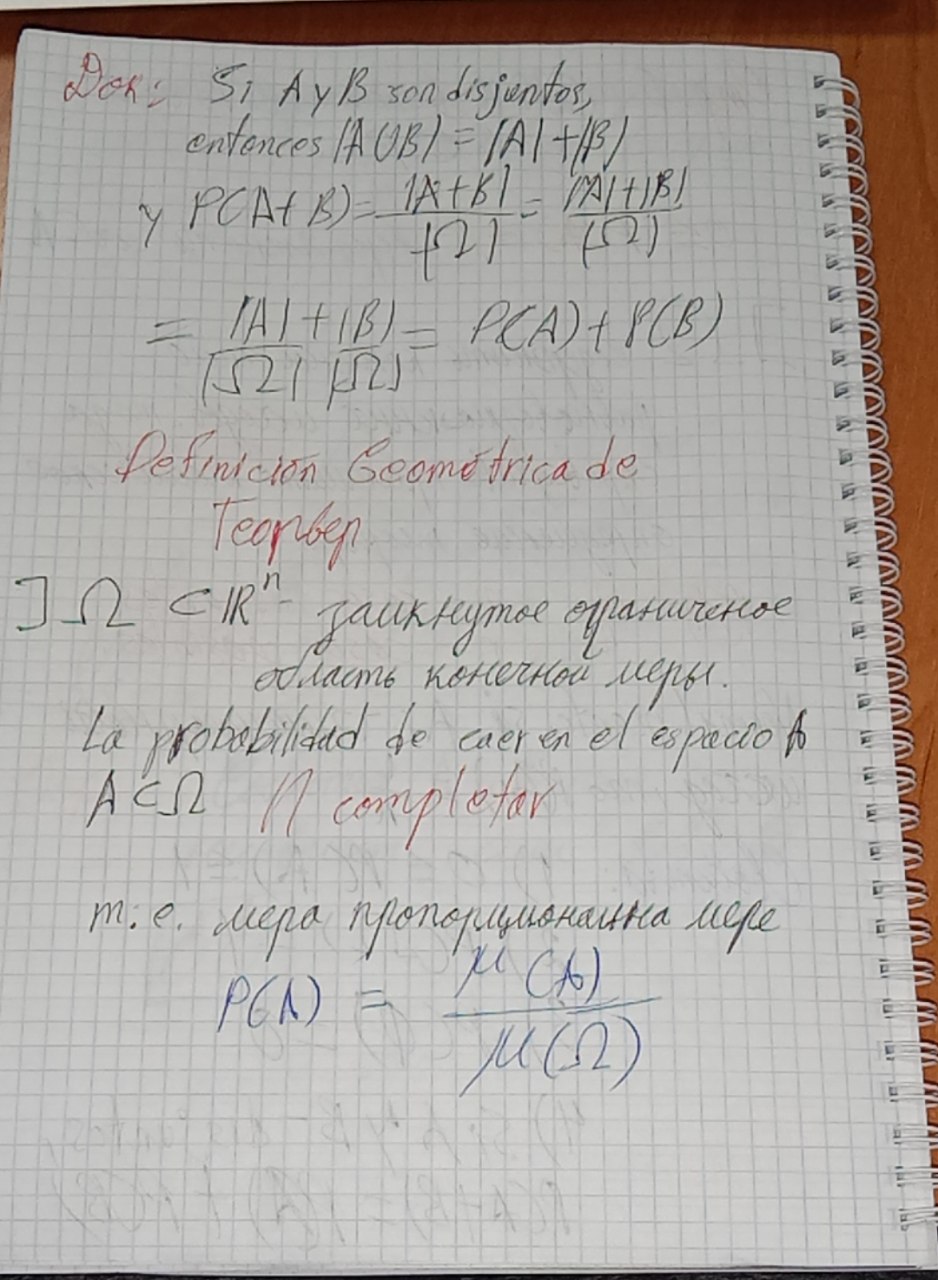 Док: Si A y B son disjuntos,
entonces |A∪B| = |A| + |B|
y P(A+B) = |A+B| / |Ω| = |A|+|B| / |Ω|
= |A| / |Ω| + |B| / |Ω| = P(A) + P(B)
Definición Geométrica de
Теорвер
] Ω ⊂ ℝⁿ - замкнутое ограниченое
область конечной меры.
La probabilidad de caer en el espacio A
A ⊂ Ω // completar
т.е. мера пропорциональна мере
P(A) = μ(A) / μ(Ω)